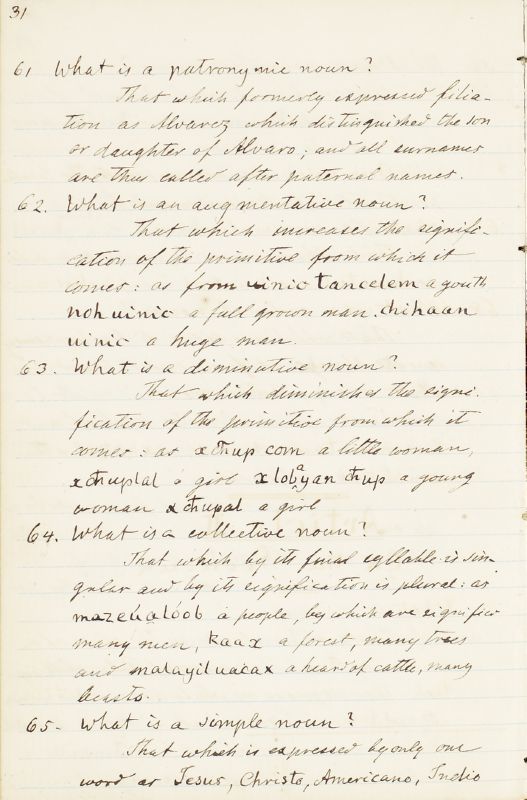 31
61 What is a patronymic noun?
That which formerly expressed filia-
tion as Alvarez which distinguished the son
or daughter of Alvaro; and all surnames
are thus called after paternal names.
62. What is an augmentative noun?
That which increases the signifi-
cation of the primitive from which it
comes: as from uinic tancelem a youth
nohuinic a full grown man. chihaan
uinic a huge man.
63. What is a diminutive noun?
That which diminishes the signi-
fication of the primitive from which it
comes: as xchup com a little woman,
xchuplal a girl xlobayan chup a young
woman xchupal a girl
64. What is a collective noun?
That which by its final syllable is sin-
gular and by its signification is plural: as
mazeualoob a people, by which are signified
many men, kaax a forest, many trees
and malayil uacax a heard of cattle, many
beasts.
65- What is a simple noun?
That which is expressed by only one
word as Jesus, Christo, Americano, Indio